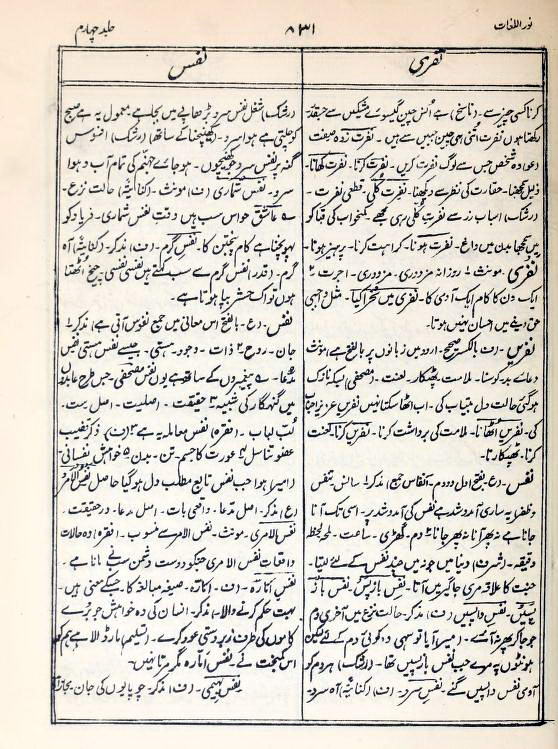 نور اللغات
۸۳۱
جلد چہارم
نفری
نفس
کرنا کسی چیز سے۔ (ناسخ) ہے اُنس جن گیسوئے مشکیں سے جسقدر
رکھتا ہوں نفرت اتنی ہی چین جبیں سے ہیں۔ نفرت زدہ صفت
(عو) وہ شخص جس سے لوگ نفرت کریں۔ نفرت کرنا۔ نفرت کھانا۔
ذلیل سمجھنا۔ حقارت کی نظر سے دیکھنا۔ نفرت کلّی۔ قطعی نفرت۔
(رشک) اسباب زر سے نفرت کلی رہی مجھے کمخواب کی قبا کو
میں سمجھا بدن میں داغ۔ نفرت ہونا۔ کراہت کرنا۔ پرہیز ہونا۔
نفری۔ مونث ۱ روزانہ مزدوری۔ مزدوری۔ اجرت ۲
ایک دن کا کام ایک آدمی کا۔ نفری میں نخرا کیا۔ مثل۔ واجبی
حق دینے میں احسان نہیں ہوتا۔
نفریں۔ (ف بالکسر صحیح۔ اردو میں زبانوں پر بالفتح ہے) مونث
دعائے بد کرنا۔ ملامت۔ پھٹکار۔ لعنت۔ (مصحفی) ایکہ نازک
ہو گئی حالت دل بیتاب کی۔ اب اٹھا سکتا نہیں نفریں عزیز احباب
کی۔ نفریں اٹھانا۔ ملامت کی برداشت کرنا۔ نفریں کرنا۔ لعنت
کرنا۔ پھٹکارنا۔
نفس۔ (ع۔ بفتح اول و دوم۔ انفاس جمع) مذکر ۱ سانس۔ تنفس
جانا ہے نہ پھر آنا نہ پھر جانا ۲ دم۔ گھڑی۔ ساعت۔ لمحہ لحظہ
دقیقہ۔ (شرف) دنیا میں جو نہ میں چند نفس کے لئے لیتا۔
جنت کا علاقہ مری جاگیر میں آتا۔ نفس بازپس۔ نفس باز
پسیں۔ نفس واپسیں (ف) مذکر۔ حالت نزع میں آخری دم
جو جا کر پھر نہ آئے۔ (میر) آیا تو سہی وہ کوئی دم کے لئے لیکن
ہونٹوں پہ مرے جب نفس بازپسیں تھا۔ (رشک) ہر دم کو
آدمی نفس واپسیں گنے۔ نفس سرد۔ (ف) (کنایۃً) آہ سرد۔
(رشک) شغل نفس سرد بڑھاپے میں بجا ہے۔ معمول یہ ہے صبح
کو چلتی ہے ہوا سرد۔ (کھینچنا کے ساتھ) (رشک) افسوس
گنہ پر نفس سرد جو کھینچوں۔ ہو جائے جہنم کی تمام آب و ہوا
سرد۔ نفس شماری (ف) مونث۔ (کنایۃً) حالت نزع۔
ے عاشق حواس سب ہیں وقتِ نفس شماری۔ فریاد کو
پہونچنا ہے کام پنجتن کا۔ نفس گرم۔ (ف) مذکر۔ (کنایۃً) آہ
گرم۔ (قدر) نفس گرم سے سب کہتے ہیں نفسی نفسی جب اٹھتا
ہوں تو اک حشر بپا ہوتا ہے۔
نفس۔ (ع۔ بالفتح اس معانی میں جمع نفوس آتی ہے) مذکر ۱
جان۔ روح ۲ ذات۔ وجود۔ ہستی۔ جیسے نفس ہستی نفس
مدعا۔ ے پیمبروں کے ساتھ ہے یوں نفس مصحفی جس طرح عابدوں
میں گنہگار کی شبیہ ۳ حقیقت۔ اصلیت۔ اصل بہت۔
لُب لباب۔ (فقرہ) نفس معاملہ یہ ہے ۴ (ف) ذکر قضیب
عضو تناسل ۵ عورت کا جسم۔ تن۔ بدن ۶ خواہش نفسانی
(امیر) ہوا جب نفس تابع مطلب دل ہو گیا حاصل نفس الامر
(ع) مذکر۔ اصل مدعا۔ واقعی بات۔ اصل مدعا۔ درحقیقت۔
نفس الامری۔ مونث۔ نفس الامر سے منسوب۔ (فقرہ) وہ حالات
واقعات نفس الامری جنکو دوست دشمن سب نے مانا ہے۔
نفس امّارہ۔ (ف۔ امّارہ۔ صیغہ مبالغہ کا۔ جسکے معنی ہیں۔
بہت حکم کرنے والا) مذکر۔ انسان کی وہ خواہش جو بُرے
کاموں کی طرف زبردستی عود کرے۔ (تسلیم) مار ڈالا ہے ہم کو
اس کمبخت نے نفس امّارہ مگر مرتا نہیں۔
نفس بہیمی۔ (ف) مذکر۔ چوپایوں کی جان۔ مجازاً